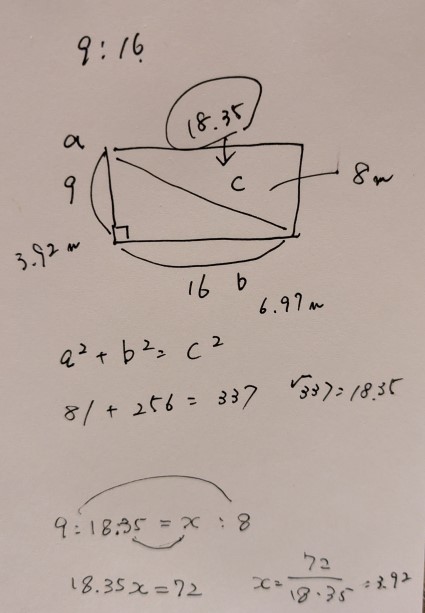 9:16
18.35
a
9
c
8m
3.92m
16 b
6.97m
a² + b² = c²
81 + 256 = 337 √337 = 18.35
9:18.35 = x:8
18.35x = 72 x = 72/18.35 = 3.92